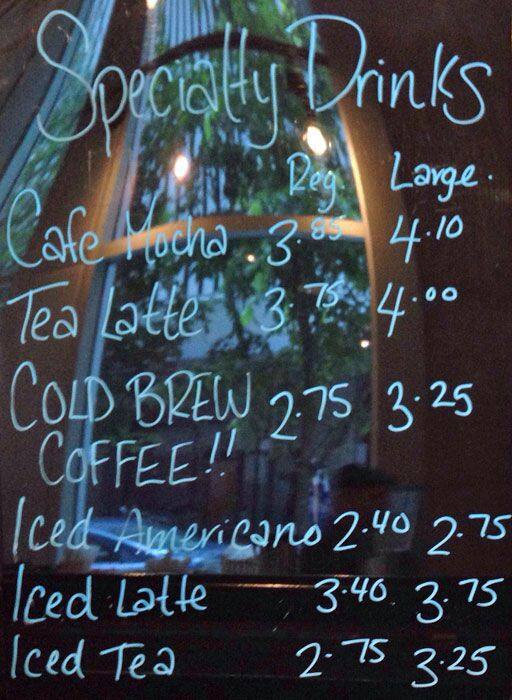 Specialty Drinks
Reg. Large.
Cafe Mocha 3.85 4.10
Tea Latte 3.75 4.00
COLD BREW 2.75 3.25
COFFEE!!
Iced Americano 2.40 2.75
Iced Latte 3.40 3.75
Iced Tea 2.75 3.25